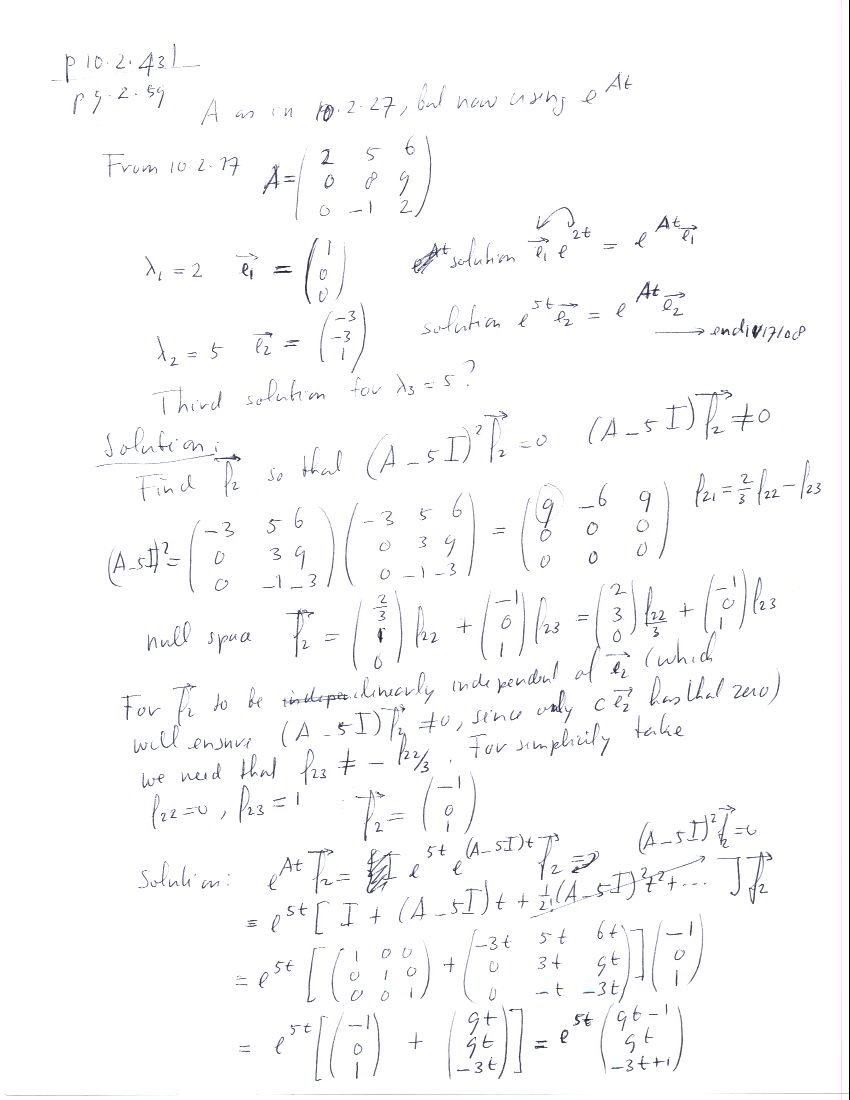 p 10.2.43
p 9.2.59
A as in 10.2.27, but now using e^{At}
From 10.2.27 A = \begin{pmatrix} 2 & 5 & 6 \\ 0 & 8 & 9 \\ 0 & -1 & 2 \end{pmatrix}
λ_1 = 2 \vec{e_1} = \begin{pmatrix} 1 \\ 0 \\ 0 \end{pmatrix} solution \vec{e_1} e^{2t} = e^{At} \vec{e_1}
λ_2 = 5 \vec{e_2} = \begin{pmatrix} -3 \\ -3 \\ 1 \end{pmatrix} solution e^{5t} \vec{e_2} = e^{At} \vec{e_2}
→ end 11/17/08
Third solution for λ_3 = 5?
Solution:
Find \vec{f_2} so that (A - 5I)^2 \vec{f_2} = 0 (A - 5I) \vec{f_2} ≠ 0
(A-5I)^2 = \begin{pmatrix} -3 & 5 & 6 \\ 0 & 3 & 9 \\ 0 & -1 & -3 \end{pmatrix} \begin{pmatrix} -3 & 5 & 6 \\ 0 & 3 & 9 \\ 0 & -1 & -3 \end{pmatrix} = \begin{pmatrix} 9 & -6 & 9 \\ 0 & 0 & 0 \\ 0 & 0 & 0 \end{pmatrix} f_{21} = \frac{2}{3} f_{22} - f_{23}
null space \vec{f_2} = \begin{pmatrix} \frac{2}{3} \\ 1 \\ 0 \end{pmatrix} f_{22} + \begin{pmatrix} -1 \\ 0 \\ 1 \end{pmatrix} f_{23} = \begin{pmatrix} 2 \\ 3 \\ 0 \end{pmatrix} \frac{f_{22}}{3} + \begin{pmatrix} -1 \\ 0 \\ 1 \end{pmatrix} f_{23}
For \vec{f_2} to be linearly independent of \vec{e_2} (which
will ensure (A - 5I) \vec{f_2} ≠ 0, since only c \vec{e_2} has that zero)
we need that f_{23} ≠ - f_{22}/3. For simplicity take
f_{22} = 0, f_{23} = 1 \vec{f_2} = \begin{pmatrix} -1 \\ 0 \\ 1 \end{pmatrix}
Solution: e^{At} \vec{f_2} = e^{5t} e^{(A-5I)t} \vec{f_2} (A-5I)^2 \vec{f_2} = 0
= e^{5t} [ I + (A-5I)t + \frac{1}{2!} (A-5I)^2 t^2 + ... ] \vec{f_2}
= e^{5t} [ \begin{pmatrix} 1 & 0 & 0 \\ 0 & 1 & 0 \\ 0 & 0 & 1 \end{pmatrix} + \begin{pmatrix} -3t & 5t & 6t \\ 0 & 3t & 9t \\ 0 & -t & -3t \end{pmatrix} ] \begin{pmatrix} -1 \\ 0 \\ 1 \end{pmatrix}
= e^{5t} [ \begin{pmatrix} -1 \\ 0 \\ 1 \end{pmatrix} + \begin{pmatrix} 9t \\ 9t \\ -3t \end{pmatrix} ] = e^{5t} \begin{pmatrix} 9t-1 \\ 9t \\ -3t+1 \end{pmatrix}